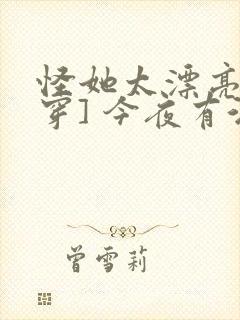 怪她太漂亮
穿] 今夜有
曾雪莉